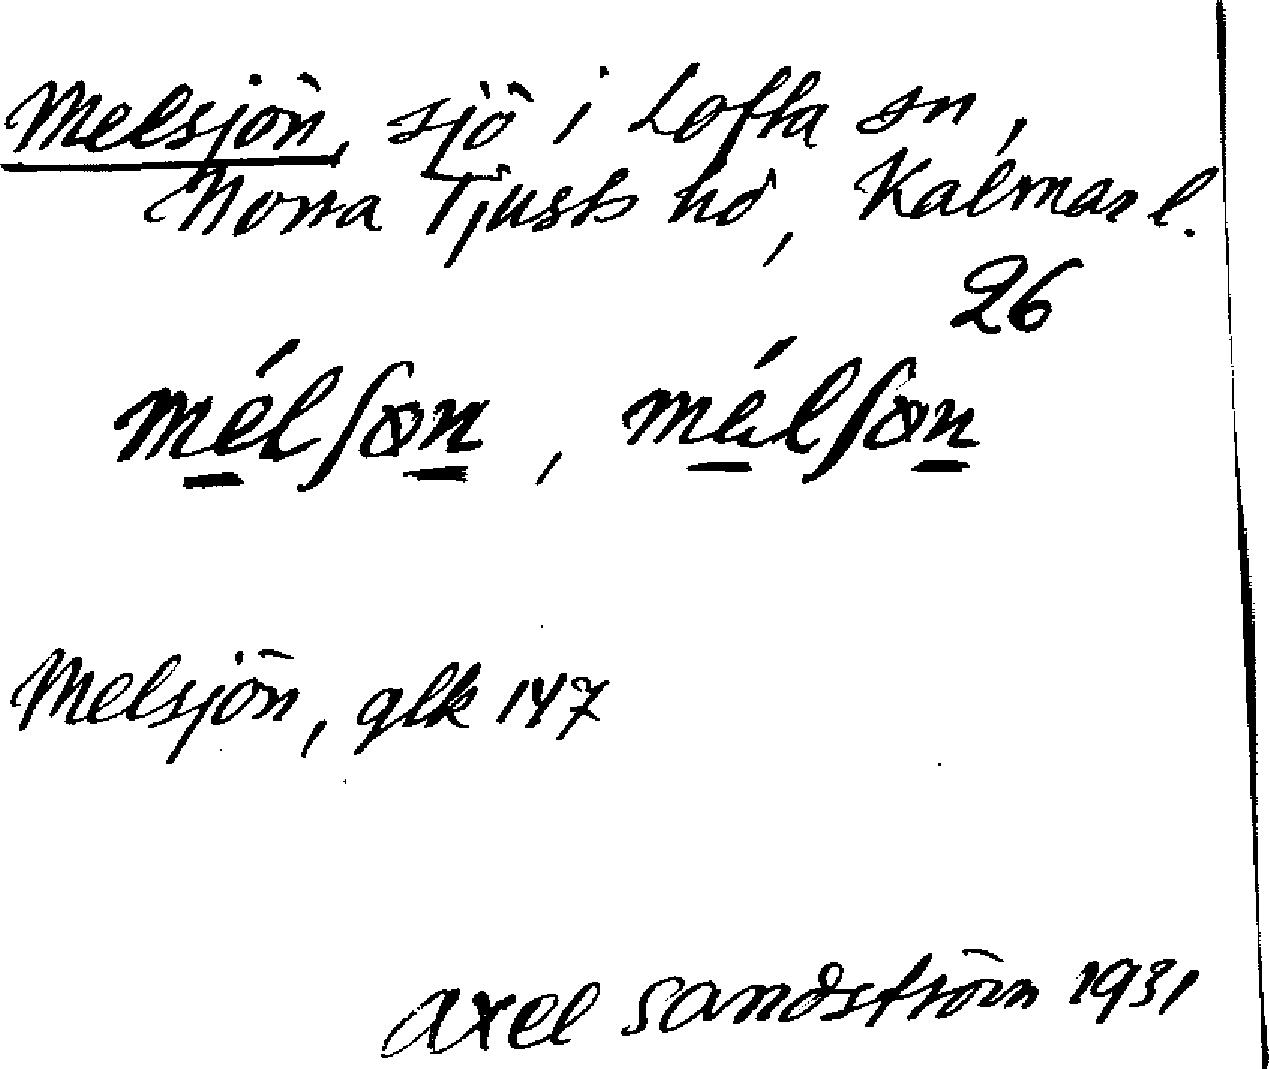 Melsjön, sjö i Lofta sn,
Norra Tjusts hd, Kalmar l.
26
mélʃøn, mǽlʃøn
Melsjön, glk 147
Axel Sandström 1931